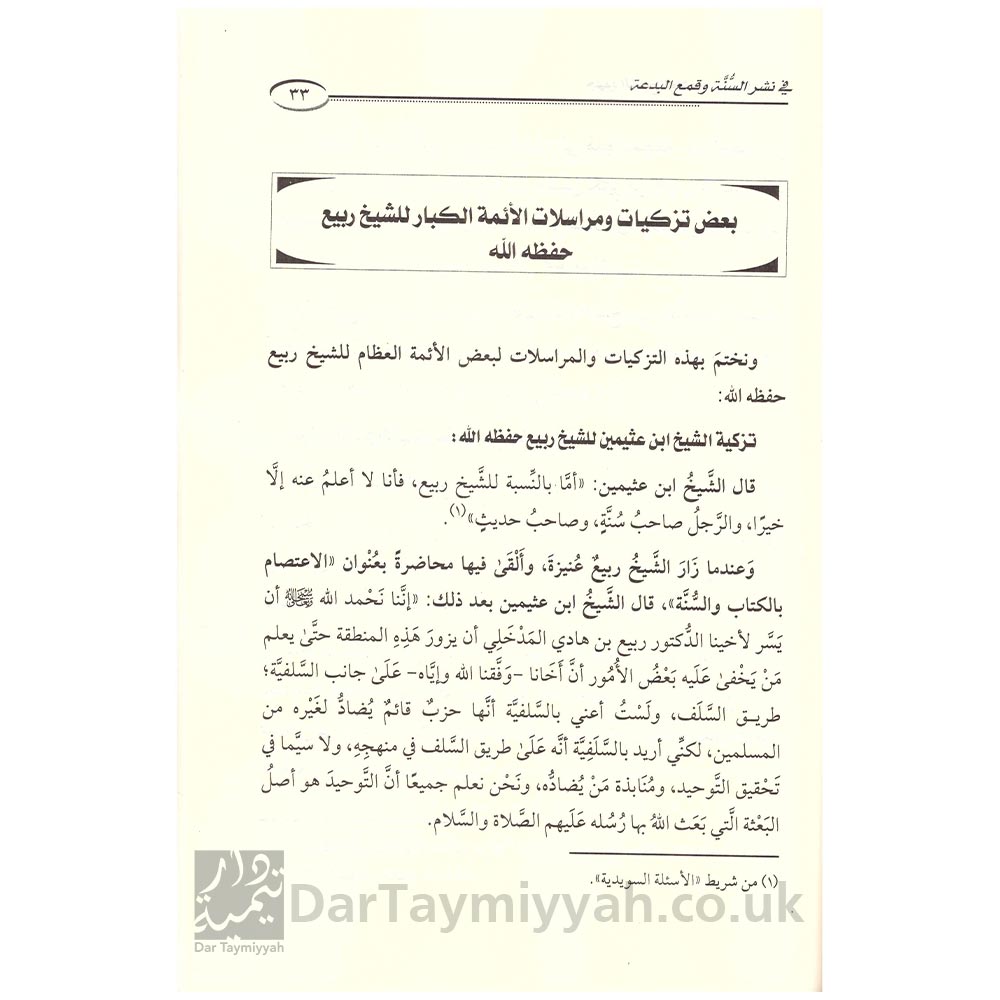 في نشر السُّنَّة وقمع البدعة
٣٣
بعض تزكيات ومراسلات الأئمة الكبار للشيخ ربيع
حفظه الله
ونختمَ بهذه التزكيات والمراسلات لبعض الأئمة العظام للشيخ ربيع
حفظه الله:
تزكية الشيخ ابن عثيمين للشيخ ربيع حفظه الله:
قال الشَّيخُ ابن عثيمين: «أمَّا بالنِّسبة للشَّيخ ربيع، فأنا لا أعلمُ عنه إلَّا
خيرًا، والرَّجلُ صاحبُ سُنَّةٍ، وصاحبُ حديثٍ»(١).
وَعندما زَارَ الشَّيخُ ربيعٌ عُنيزةَ، وأَلْقَىٰ فيها محاضرةً بعُنْوان «الاعتصام
بالكتاب والسُّنَّة»، قال الشَّيخُ ابن عثيمين بعد ذلك: «إنَّنا نَحْمد الله أن
يَسَّر لأخينا الدُّكتور ربيع بن هادي المَدْخَلِي أن يزورَ هَذِهِ المنطقة حتَّىٰ يعلم
مَنْ يَخْفىٰ عَلَيه بَعْضُ الأُمُور أنَّ أَخَانا -وَفَّقنا الله وإيَّاه- عَلَىٰ جانب السَّلفيَّة؛
طريـق السَّلَف، ولَسْتُ أعني بالسَّلفيَّة أنَّها حزبٌ قائمٌ يُضادُّ لغَيْره من
المسلمين، لكنِّي أريد بالسَّلَفِيَّة أنَّه عَلَىٰ طريق السَّلف في منهجِهِ، ولا سيَّما في
تَحْقيق التَّوحيد، ومُنَابذة مَنْ يُضادُّه، ونَحْن نعلم جميعًا أنَّ التَّوحيدَ هو أصلُ
البَعْثة الَّتي بَعَث اللهُ بها رُسُله عَلَيهم الصَّلاة والسَّلام.
(١) من شريط «الأسئلة السويدية».
دار
تيمية
Dar Taymiyyah
DarTaymiyyah.co.uk